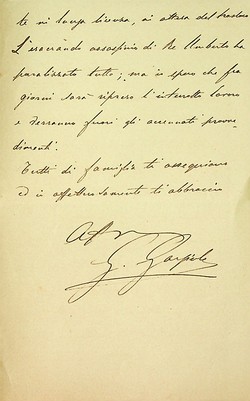 te in lunga licenza, in attesa del trasloco
L'esecrando assassinio di Re Umberto ha
paralizzato tutto; ma io spero che fra
giorni sarà ripreso l'interrotto lavoro
e verranno fuori gli accennati provve-
dimenti.
Tutti di famiglia ti ossequiano
ed io affettuosamente ti abbraccio
G.